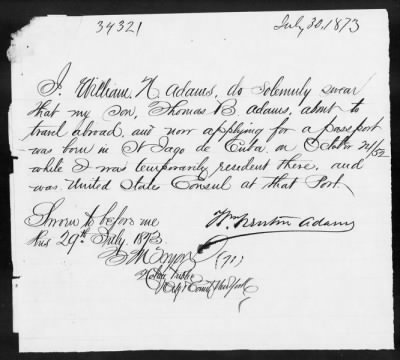 34321
July 30, 1873
I, William N Adams, do solemnly swear
that my son, Thomas B. Adams, about to
travel abroad, and now applying for a passport
was born in St Jago de Cuba on October 24/52
while I was temporarily resident there, and
was United States Consul at that Port.
Sworn to before me
this 29th July, 1873
Wm Newton Adams
(71)
Notary Public
City & County New York